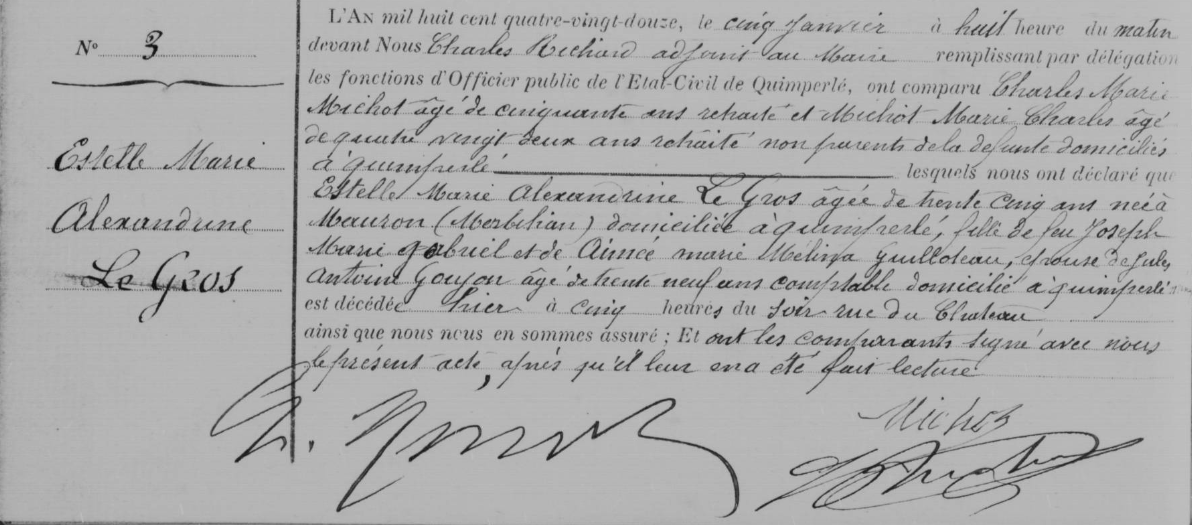 N° 3
Estelle Marie
Alexandrine
Le Gros
L'AN mil huit cent quatre-vingt-douze, le cinq Janvier à huit heure du matin
devant Nous Charles Richard adjoint au Maire remplissant par délégation
les fonctions d'Officier public de l'Etat-Civil de Quimperlé, ont comparu Charles Marie
Michot âgé de cinquante ans retraité et Michot Marie Charles âgé
de quatre vingt deux ans retraité non parents de la defunte domiciliés
à quimperlé lesquels nous ont déclaré que
Estelle Marie Alexandrine Le Gros âgée de trente cinq ans née à
Mauron (Morbihan) domiciliée à quimperlé, fille de feu Joseph
Marie gabriel et de Aimée marie Mélina Guilloteau, epouse de Jules
Antoine Goyon âgé de trente neuf ans comptable domicilié à quimperlé
est décédée hier à cinq heures du soir rue du Chateau
ainsi que nous nous en sommes assuré ; Et ont les comparants signé avec nous
le présent acte, après qu'il leur en a été fait lecture
Michot